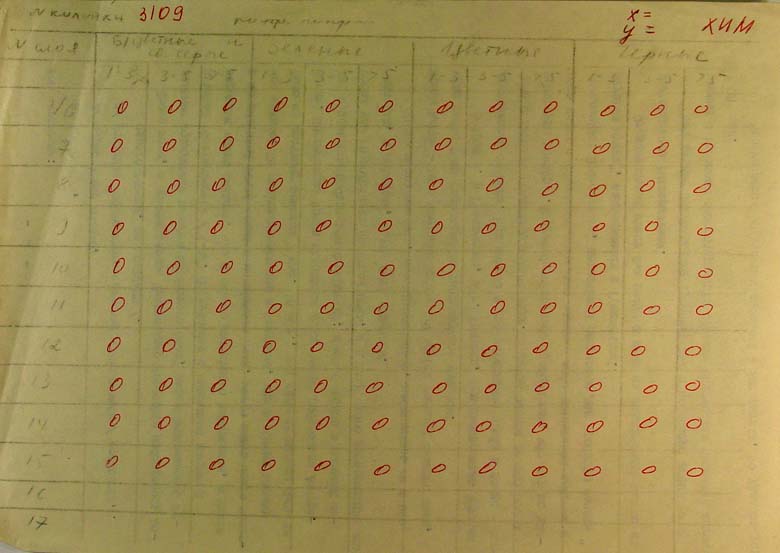 N калитки 3109 x= ХИМ
y=
N слоя Бцветные и св серые Зеленые Цветные Черные
1-3 3-5 >5 1-3 3-5 >5 1-3 3-5 >5 1-3 3-5 >5
1/6 0 0 0 0 0 0 0 0 0 0 0 0
7 0 0 0 0 0 0 0 0 0 0 0 0
8 0 0 0 0 0 0 0 0 0 0 0 0
9 0 0 0 0 0 0 0 0 0 0 0 0
10 0 0 0 0 0 0 0 0 0 0 0 0
11 0 0 0 0 0 0 0 0 0 0 0 0
12 0 0 0 0 0 0 0 0 0 0 0 0
13 0 0 0 0 0 0 0 0 0 0 0 0
14 0 0 0 0 0 0 0 0 0 0 0 0
15 0 0 0 0 0 0 0 0 0 0 0 0
16
17